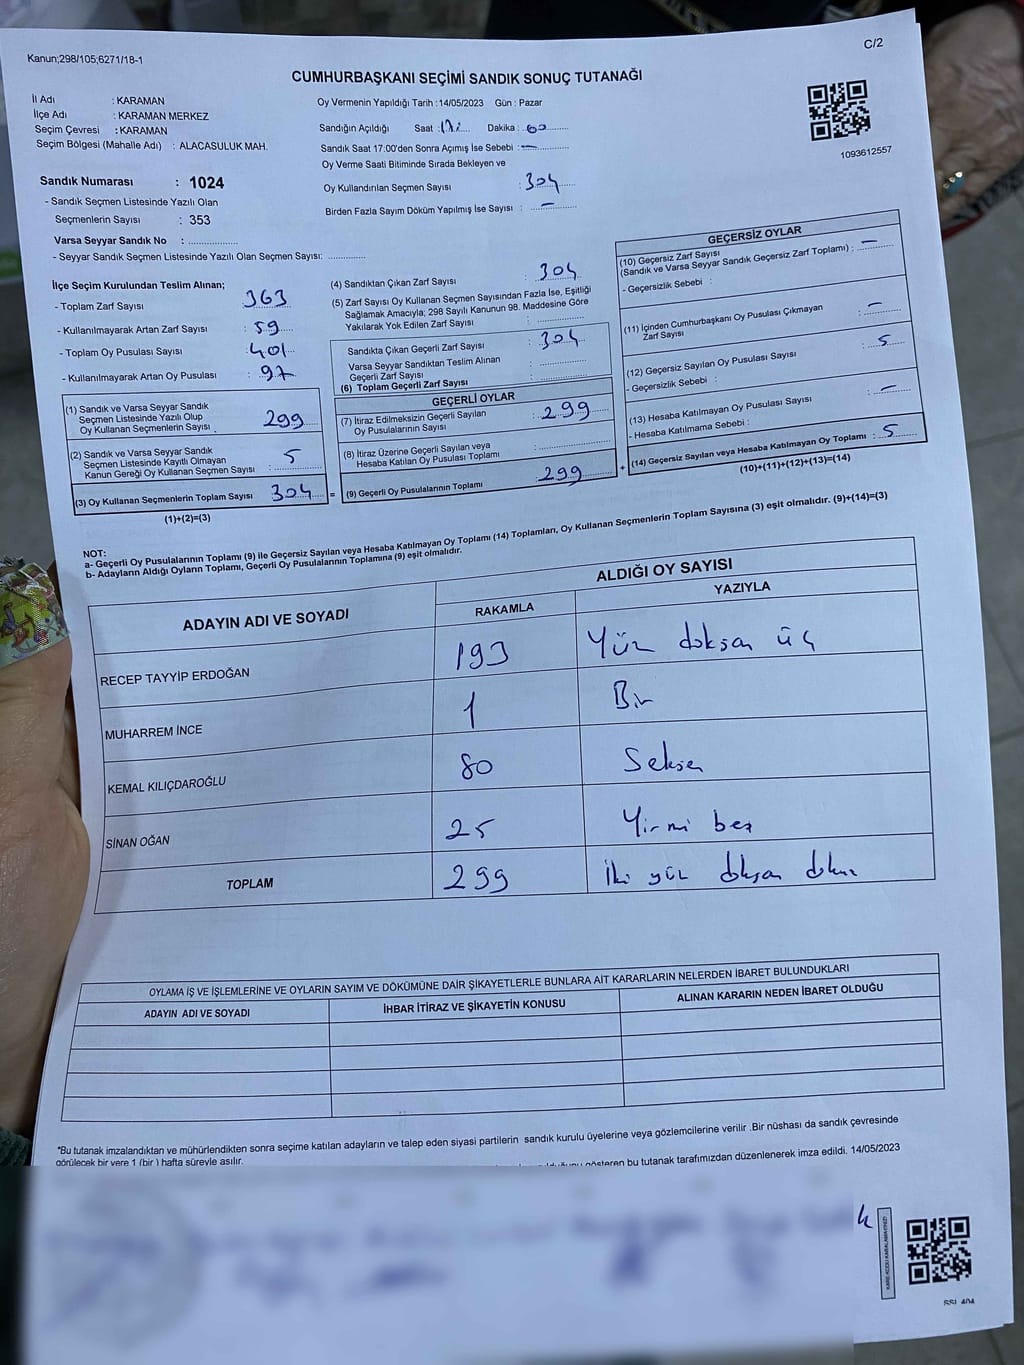 Kanun;298/105;6271/18-1
C/2
CUMHURBAŞKANI SEÇİMİ SANDIK SONUÇ TUTANAĞI
İl Adı : KARAMAN
İlçe Adı : KARAMAN MERKEZ
Seçim Çevresi : KARAMAN
Seçim Bölgesi (Mahalle Adı) : ALACASULUK MAH.
Sandık Numarası : 1024
- Sandık Seçmen Listesinde Yazılı Olan
Seçmenlerin Sayısı : 353
Varsa Seyyar Sandık No : ....................
- Seyyar Sandık Seçmen Listesinde Yazılı Olan Seçmen Sayısı: ..............
Oy Vermenin Yapıldığı Tarih :14/05/2023 Gün : Pazar
Sandığın Açıldığı Saat : 17 Dakika : 00
Sandık Saat 17:00'den Sonra Açımış İse Sebebi : —
Oy Verme Saati Bitiminde Sırada Bekleyen ve
Oy Kullandırılan Seçmen Sayısı : 304
Birden Fazla Sayım Döküm Yapılmış İse Sayısı : —
1093612557
İlçe Seçim Kurulundan Teslim Alınan;
- Toplam Zarf Sayısı : 363
- Kullanılmayarak Artan Zarf Sayısı : 59
- Toplam Oy Pusulası Sayısı : 401
- Kullanılmayarak Artan Oy Pusulası : 97
(1) Sandık ve Varsa Seyyar Sandık
Seçmen Listesinde Yazılı Olup
Oy Kullanan Seçmenlerin Sayısı : 299
(2) Sandık ve Varsa Seyyar Sandık
Seçmen Listesinde Kayıtlı Olmayan
Kanun Gereği Oy Kullanan Seçmen Sayısı : 5
(3) Oy Kullanan Seçmenlerin Toplam Sayısı 304 =
(1)+(2)=(3)
(4) Sandıktan Çıkan Zarf Sayısı : 304
(5) Zarf Sayısı Oy Kullanan Seçmen Sayısından Fazla İse, Eşitliği
Sağlamak Amacıyla; 298 Sayılı Kanunun 98. Maddesine Göre
Yakılarak Yok Edilen Zarf Sayısı : ..............
Sandıkta Çıkan Geçerli Zarf Sayısı : 304
Varsa Seyyar Sandıktan Teslim Alınan
Geçerli Zarf Sayısı : ..............
(6) Toplam Geçerli Zarf Sayısı : ..............
GEÇERLİ OYLAR
(7) İtiraz Edilmeksizin Geçerli Sayılan
Oy Pusulalarının Sayısı : 299
(8) İtiraz Üzerine Geçerli Sayılan veya
Hesaba Katılan Oy Pusulası Toplamı : ..............
(9) Geçerli Oy Pusulalarının Toplamı 299 +
GEÇERSİZ OYLAR
(10) Geçersiz Zarf Sayısı
(Sandık ve Varsa Seyyar Sandık Geçersiz Zarf Toplamı) : —
- Geçersizlik Sebebi :
(11) İçinden Cumhurbaşkanı Oy Pusulası Çıkmayan
Zarf Sayısı : —
(12) Geçersiz Sayılan Oy Pusulası Sayısı : 5
- Geçersizlik Sebebi :
(13) Hesaba Katılmayan Oy Pusulası Sayısı : —
- Hesaba Katılmama Sebebi :
(14) Geçersiz Sayılan veya Hesaba Katılmayan Oy Toplamı : 5
(10)+(11)+(12)+(13)=(14)
NOT:
a- Geçerli Oy Pusulalarının Toplamı (9) ile Geçersiz Sayılan veya Hesaba Katılmayan Oy Toplamı (14) Toplamları, Oy Kullanan Seçmenlerin Toplam Sayısına (3) eşit olmalıdır. (9)+(14)=(3)
b- Adayların Aldığı Oyların Toplamı, Geçerli Oy Pusulalarının Toplamına (9) eşit olmalıdır.
ADAYIN ADI VE SOYADI
ALDIĞI OY SAYISI
RAKAMLA YAZIYLA
RECEP TAYYİP ERDOĞAN 193 Yüz doksan üç
MUHARREM İNCE 1 Bir
KEMAL KILIÇDAROĞLU 80 Seksen
SİNAN OĞAN 25 Yirmi beş
TOPLAM 299 İki yüz doksan dokuz
OYLAMA İŞ VE İŞLEMLERİNE VE OYLARIN SAYIM VE DÖKÜMÜNE DAİR ŞİKAYETLERLE BUNLARA AİT KARARLARIN NELERDEN İBARET BULUNDUKLARI
ADAYIN ADI VE SOYADI İHBAR İTİRAZ VE ŞİKAYETİN KONUSU ALINAN KARARIN NEDEN İBARET OLDUĞU
*Bu tutanak imzalandıktan ve mühürlendikten sonra seçime katılan adayların ve talep eden siyasi partilerin sandık kurulu üyelerine veya gözlemcilerine verilir .Bir nüshası da sandık çevresinde
görülecek bir yere 1 (bir ) hafta süreyle asılır.
gösteren bu tutanak tarafımızdan düzenlenerek imza edildi. 14/05/2023